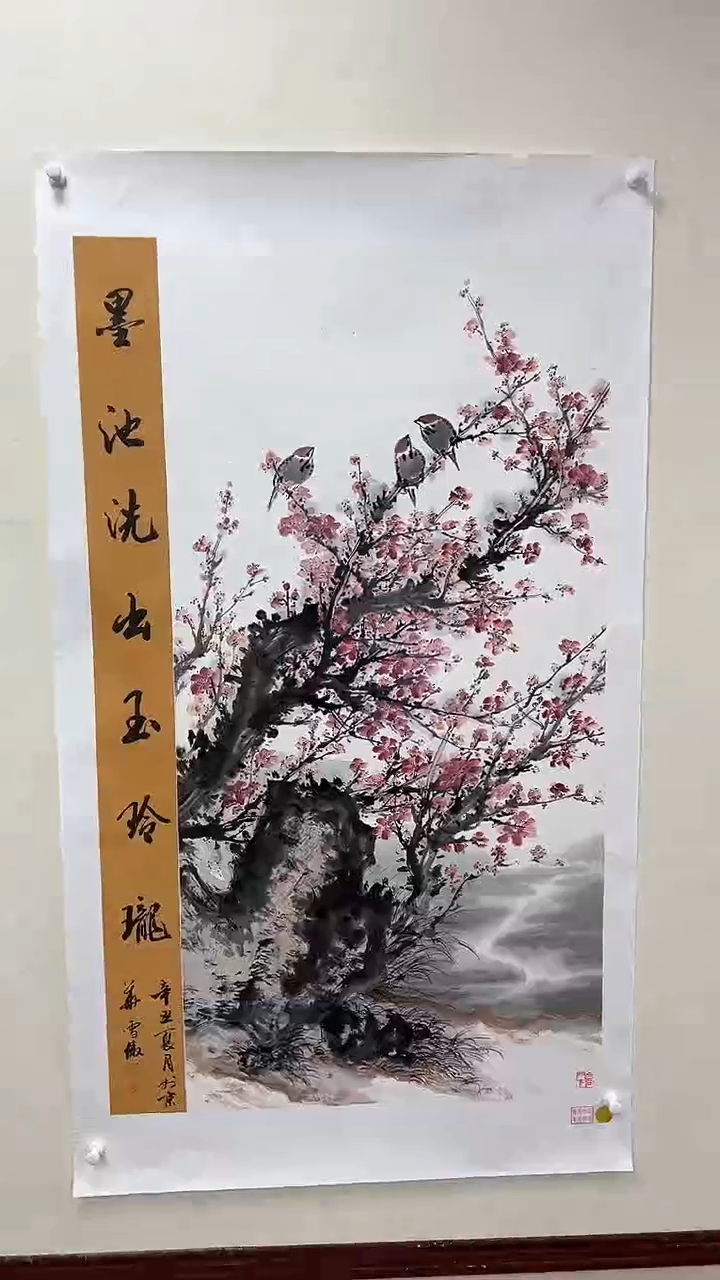 墨池洗出玉玲瓏
辛丑夏月於京
雪傲